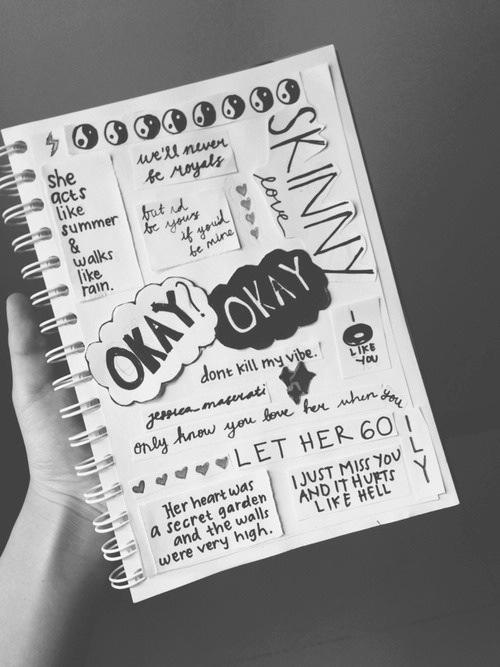 we'll never
be royals
SKINNY
love
she
acts
like
summer
&
walks
like
rain.
but id
be yours
if you'd
be mine
OKAY!
OKAY
I
LIKE
YOU
dont kill my vibe.
jessica maserati
only know you love her when you
LET HER GO
ILY
Her heart was
a secret garden
and the walls
were very high.
I JUST MISS YOU
AND IT HURTS
LIKE HELL